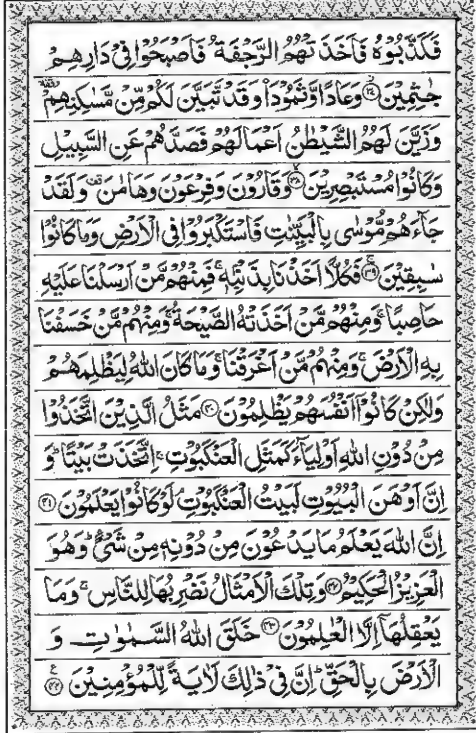 فَكَذَّبُوْهُ فَاَخَذَتْهُمُ الرَّجْفَةُ فَاَصْبَحُوْا فِیْ دَارِهِمْ
جٰثِمِیْنَ ﴿۳۷﴾ وَعَادًا وَّثَمُوْدَا۟ وَقَدْ تَّبَیَّنَ لَكُمْ مِّنْ مَّسٰكِنِهِمْ
وَزَیَّنَ لَهُمُ الشَّیْطٰنُ اَعْمَالَهُمْ فَصَدَّهُمْ عَنِ السَّبِیْلِ
وَكَانُوْا مُسْتَبْصِرِیْنَ ﴿۳۸﴾ وَقَارُوْنَ وَفِرْعَوْنَ وَهَامٰنَ وَلَقَدْ
جَآءَهُمْ مُّوْسٰی بِالْبَیِّنٰتِ فَاسْتَكْبَرُوْا فِی الْاَرْضِ وَمَا كَانُوْا
سٰبِقِیْنَ ﴿۳۹﴾ فَكُلًّا اَخَذْنَا بِذَنْۢبِهٖ ۚ فَمِنْهُمْ مَّنْ اَرْسَلْنَا عَلَیْهِ
حَاصِبًا ۚ وَمِنْهُمْ مَّنْ اَخَذَتْهُ الصَّیْحَةُ ۚ وَمِنْهُمْ مَّنْ خَسَفْنَا
بِهِ الْاَرْضَ ۚ وَمِنْهُمْ مَّنْ اَغْرَقْنَا ۚ وَمَا كَانَ اللّٰهُ لِیَظْلِمَهُمْ
وَلٰكِنْ كَانُوْۤا اَنْفُسَهُمْ یَظْلِمُوْنَ ﴿۴۰﴾ مَثَلُ الَّذِیْنَ اتَّخَذُوْا
مِنْ دُوْنِ اللّٰهِ اَوْلِیَآءَ كَمَثَلِ الْعَنْكَبُوْتِ ۚ اِتَّخَذَتْ بَیْتًا ؕ وَ
اِنَّ اَوْهَنَ الْبُیُوْتِ لَبَیْتُ الْعَنْكَبُوْتِ لَوْ كَانُوْا یَعْلَمُوْنَ ﴿۴۱﴾
اِنَّ اللّٰهَ یَعْلَمُ مَا یَدْعُوْنَ مِنْ دُوْنِهٖ مِنْ شَیْءٍ ؕ وَهُوَ
الْعَزِیْزُ الْحَكِیْمُ ﴿۴۲﴾ وَتِلْكَ الْاَمْثَالُ نَضْرِبُهَا لِلنَّاسِ ۚ وَمَا
یَعْقِلُهَاۤ اِلَّا الْعٰلِمُوْنَ ﴿۴۳﴾ خَلَقَ اللّٰهُ السَّمٰوٰتِ وَ
الْاَرْضَ بِالْحَقِّ ؕ اِنَّ فِیْ ذٰلِكَ لَاٰیَةً لِّلْمُؤْمِنِیْنَ ﴿۴۴﴾